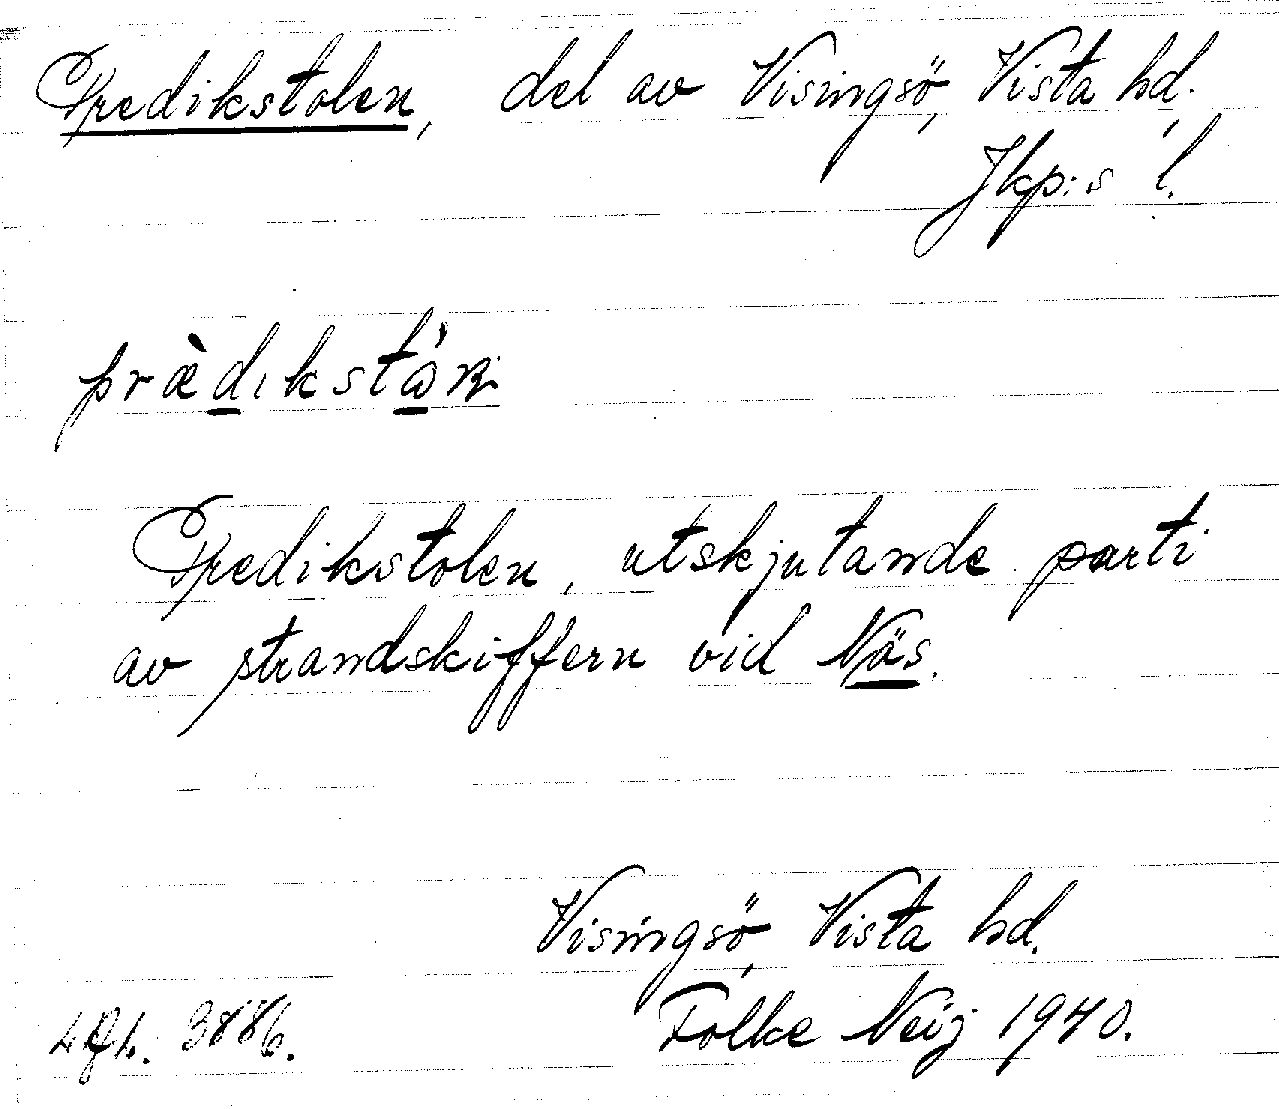 Predikstolen, del av Visingsö, Vista hd.
Jkp:s l.
Predikstolen, utskjutande parti
av strandskiffern vid Näs.
Visingsö, Vista hd.
3886. Folke Neij 1940.